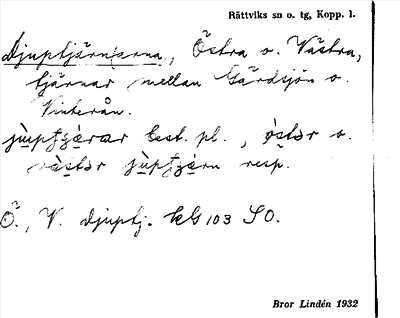 Rättviks sn o. tg, Kopp. l.
Djuptjärnarna, Östra o. Västra,
tjärnar mellan Gärdsjön o.
Vinterån.
best. pl., östər o.
västər resp.
Ö., V. Djuptj. kbl 103 SO.
Bror Lindén 1932